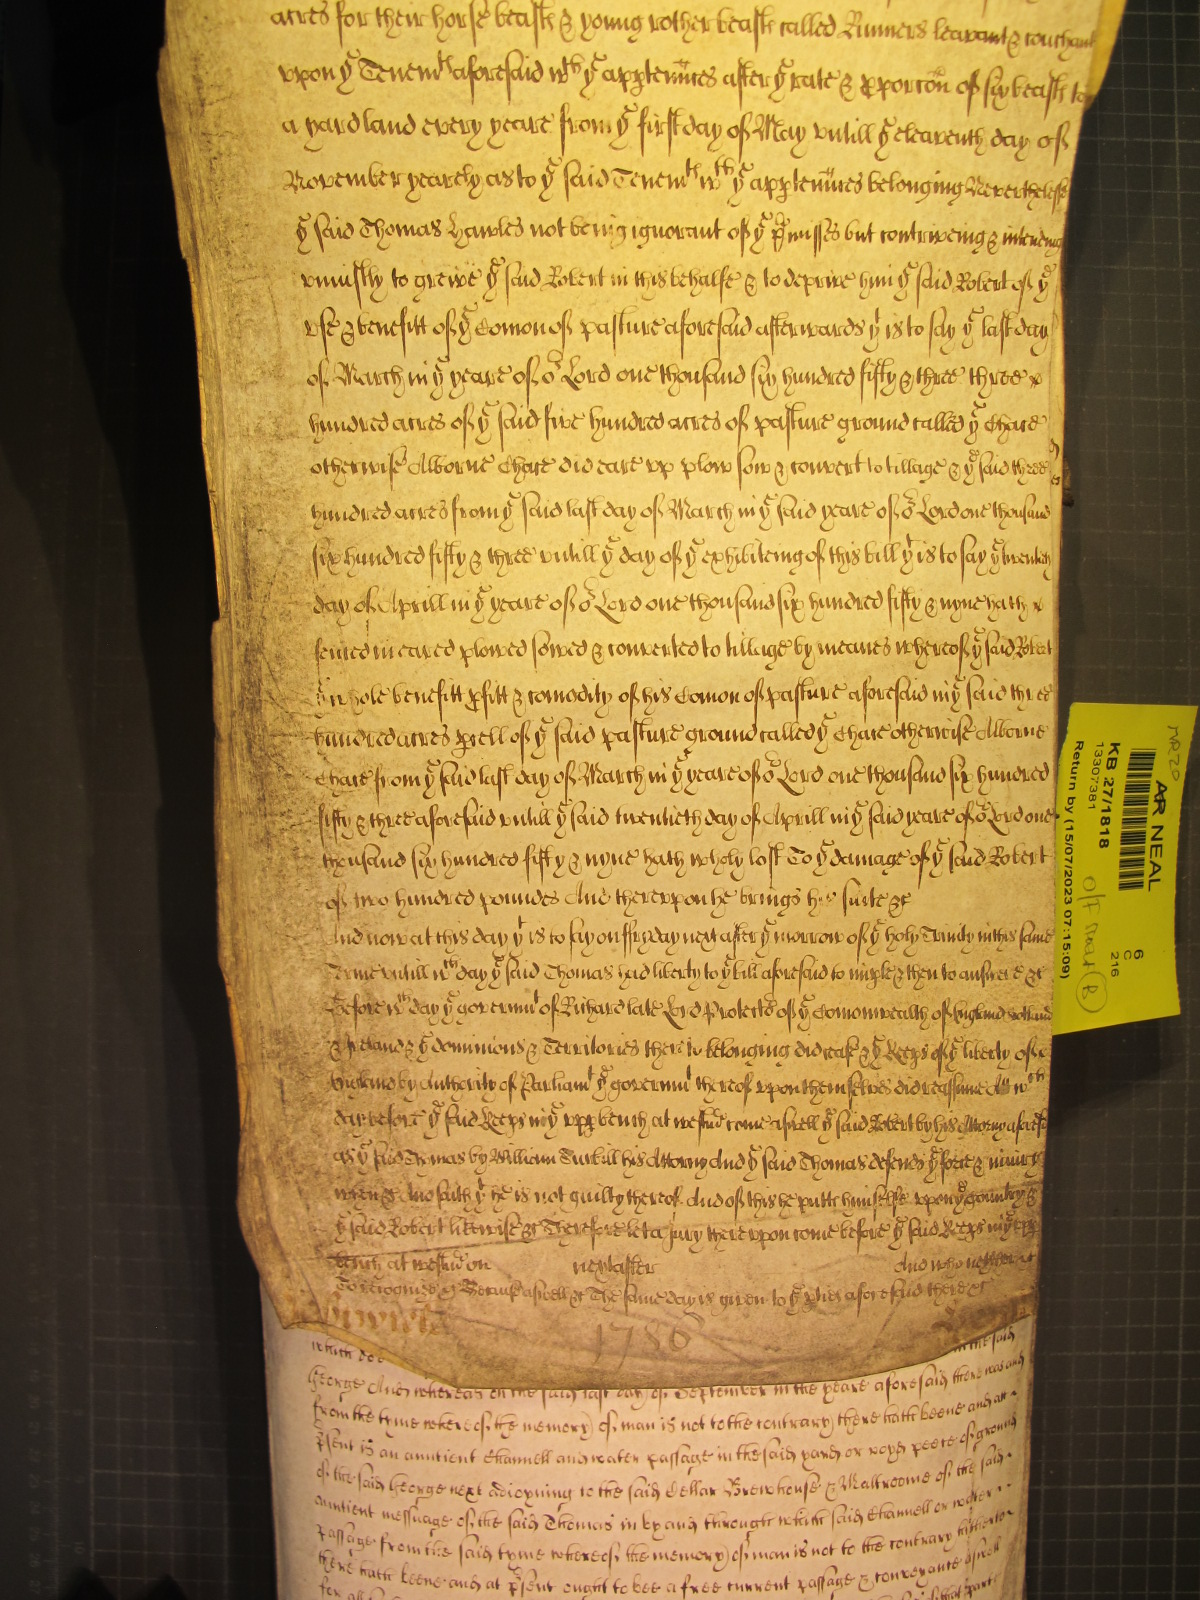 acres for their horse beasts & young rother beasts called Runners levant & couchant
upon ye Tenemts aforesaid wth ye apptennces after ye rate & pporcon of six beasts to
a yard land every yeare from ye first day of May untill ye eleaventh day of
November yearely as to ye said Tenemts wth ye apptennces belonging Neverthelesse
ye said Thomas Hawles not being ignorant of ye pmisses but contriveing & intending
uniustly to greive ye said Robert in this behalfe & to deprive him ye said Robert of ye
use & benefitt of ye Comon of pasture aforesaid afterwards yt is to say ye last day
of March in ye yeare of or Lord one thousand six hundred fifty & three three
hundred acres of ye said five hundred acres of pasture ground called ye Chace
otherwise Alborne Chace did eare up plow sow & convert to tillage & ye said three
hundred acres from ye said last day of March in ye said yeare of or Lord one thousand
six hundred fifty & three untill ye day of ye exhibiteing of this bill yt is to say ye twentieth
day of Aprill in ye yeare of or Lord one thousand six hundred fifty & nyne hath
eared plowed sowed & converted to tillage by meanes whereof ye said Robert
whole benefitt pfitt & comodity of his Comon of pasture aforesaid in ye said three
hundred acres pcell of ye said pasture ground called ye Chace otherwise Alborne
Chace from ye said last day of March in ye yeare of or Lord one thousand six hundred
fifty & three aforesaid untill ye said twentieth day of Aprill in ye said yeare of or Lord one
thousand six hundred fifty & nyne hath wholy lost To ye damage of ye said Robert
of two hundred poundes And thereupon he brings his suite &c
And now at this day yt is to say on ffryday next after ye morrow of ye holy Trinity in this same
Terme untill wch day ye said Thomas had liberty to ye bill aforesaid to imple & then to answere &c
Before wch day ye governmt of Richard late Lord Protector of ye Comonwealth of England Scotland
& Ireland & ye dominions & Territories thereto belonging did cease & ye Keeps of ye liberty of
England by Authority of Parliamt ye governmt thereof upon themselves did reassume Att wch
day before ye said Keeps in ye upp bench at westmr come aswell ye said Robert by his Attorny aforesd
as ye said Thomas by William Turkill his Attorny And ye said Thomas defends ye force & iniury
when &c And saith yt he is not guilty thereof And of this he putts himselfe upon ye Country &
ye said Robert likewise &c Therefore let a Jury thereupon come before ye said Keeps in ye upp
bench at westmr on next after And who neither &c
To recognize &c Because aswell &c The same day is given to ye pties aforesaid there &c
1786
which doe in the said
George And whereas on the said last day of September in the yeare aforesaid there was and
from the tyme whereof the memory of man is not to the contrary there hath beene and att
psent is an auntient Channell and water passage in the said yard or voyd peece of ground
of the said George next adioyning to the said Cellar Brewhouse & Maltroome of the said
auntient messuage of the said Thomas in by and through which said Channell or water
passage from the said tyme whereof the memory of man is not to the contrary hitherto
there hath beene and at psent ought to bee a free current passage & conveyance aswell
for all
AR NEAL
KB 27/1818
13307381
Return by (15/07/2023 07:15:09)
6
C
216